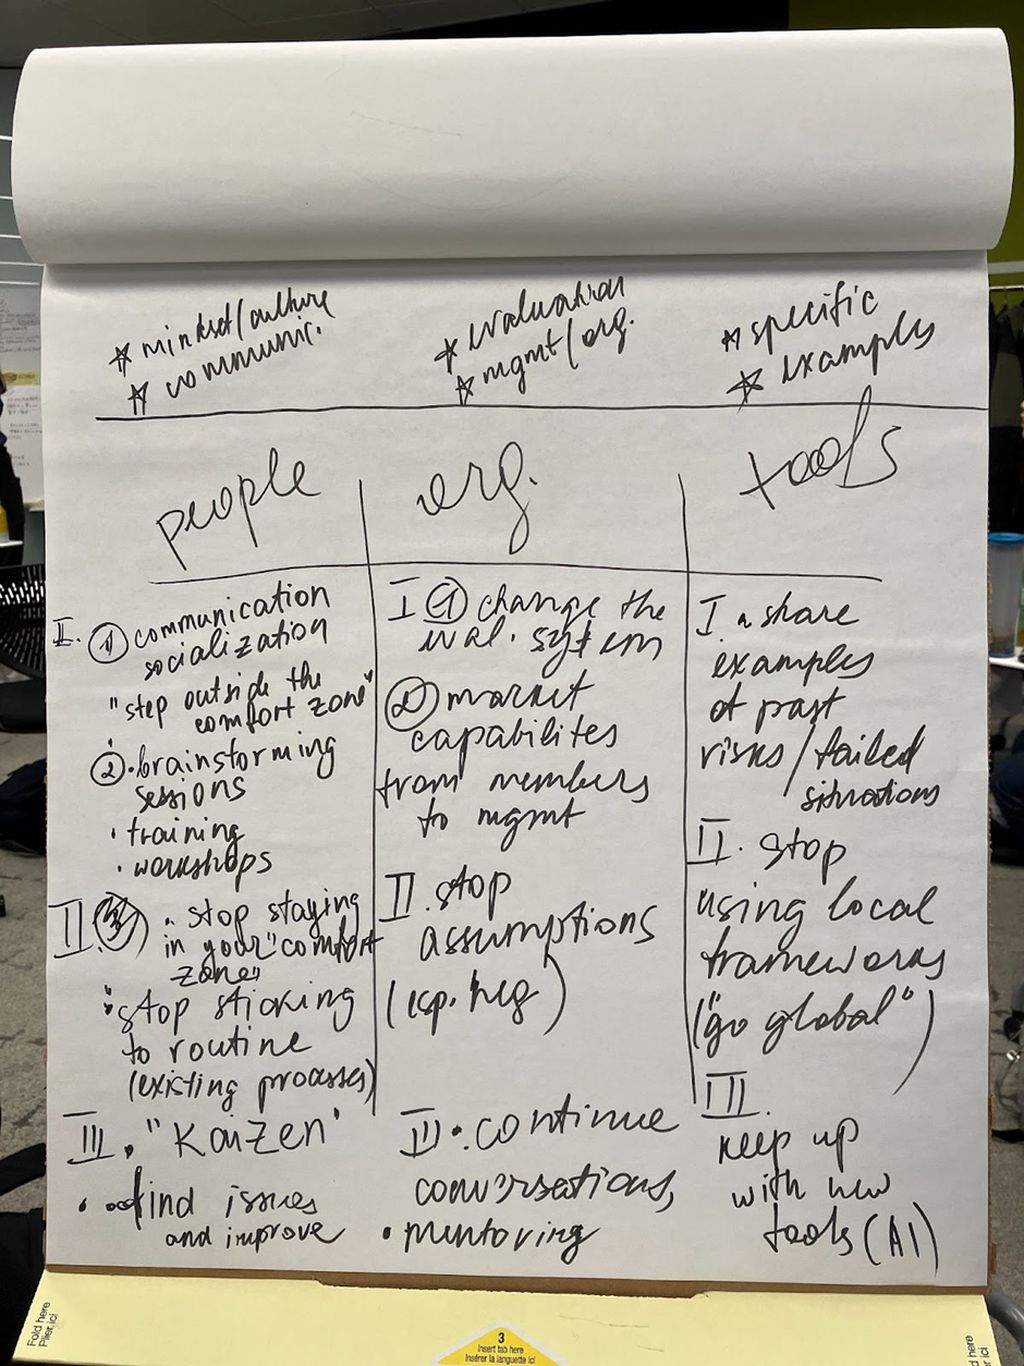 * mindset/culture
* communic.
* evaluation
* mgmt/org.
* specific
* examples
people
org.
tools
I. ① communication
socialization
"step outside the
comfort zone"
② • brainstorming
sessions
• training
• workshops
II. • stop staying
in your "comfort
zone"
• stop sticking
to routine
(existing processes)
III. • "Kaizen"
• find issues
and improve
I ① change the
eval. system
② market
capabilites
from members
to mgmt
II. stop
assumptions
(esp. neg)
III • continue
conversations,
• mentoring
I. • share
examples
of past
risks/failed
situations
II. stop
using local
frameworks
("go global")
III.
keep up
with new
tools (AI)
Fold here
Plier ici
3
Insert tab here
Insérer la languette ici